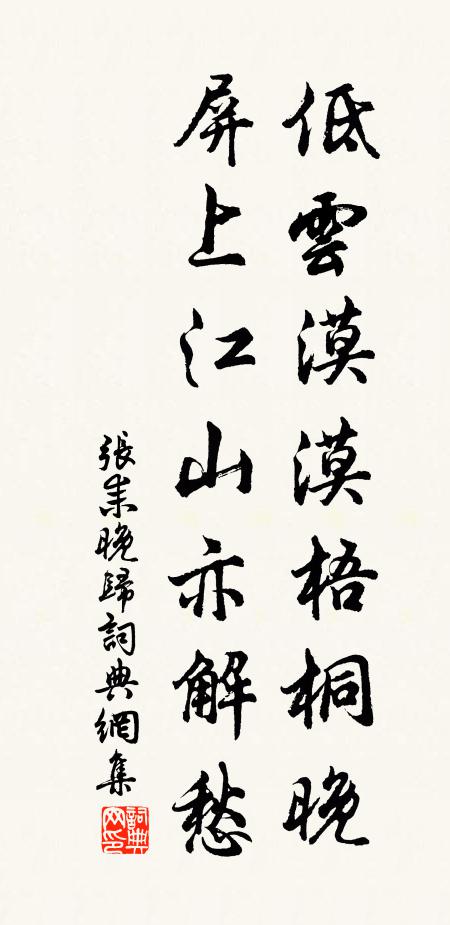 低雲漠漠梧桐晚
屏上江山亦解愁
張耒晚歸詞典網集
詞典网印